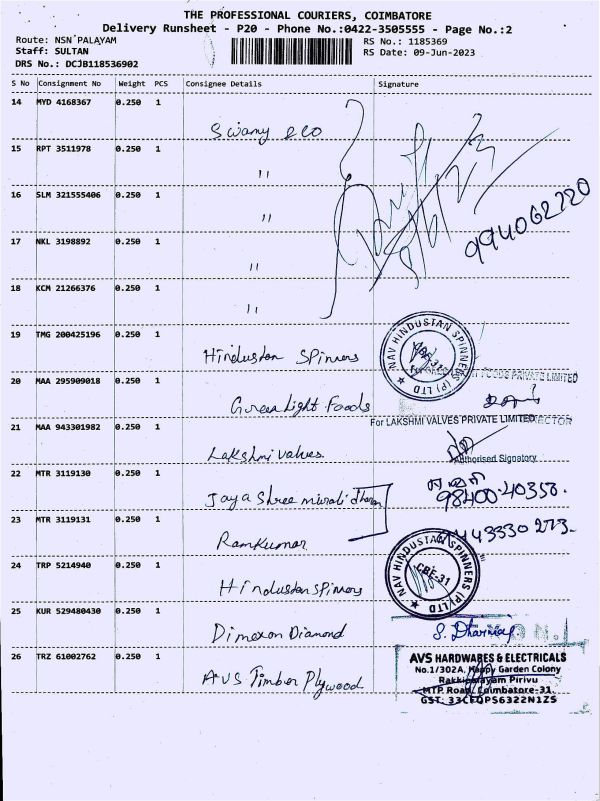 THE PROFESSIONAL COURIERS, COIMBATORE
Delivery Runsheet - P20 - Phone No.:0422-3505555 - Page No.:2
Route: NSN PALAYAM
RS No.: 1185369
Staff: SULTAN
RS Date: 09-Jun-2023
DRS No.: DCJB118536902
S No Consignment No Weight PCS Consignee Details Signature
14 MYD 4168367 0.250 1
Swamy eco
15 RPT 3511978 0.250 1
"
16 SLM 321555406 0.250 1
"
9/6/23
994062220
17 NKL 3198892 0.250 1
"
18 KCM 21266376 0.250 1
"
19 TMG 200425196 0.250 1
Hindustan Spinners
NAV HINDUSTAN SPINNERS (P) LTD
CBE-31
20 MAA 295909018 0.250 1
Green Light Foods
FOODS PRIVATE LIMITED
21 MAA 943301982 0.250 1
For LAKSHMI VALVES PRIVATE LIMITED
DIRECTOR
Lakshmi valves
Authorised Signatory
22 MTR 3119130 0.250 1
Jaya Shree murali dharan
98400-40358.
23 MTR 3119131 0.250 1
Ramkumar
43330 273-
24 TRP 5214940 0.250 1
Hindustan Spinners
NAV HINDUSTAN SPINNERS (P) LTD
CBE-31
25 KUR 529480430 0.250 1
Dimexon Diamond
S. Dharniap
26 TRZ 61002762 0.250 1
AVS Timber Plywood
AVS HARDWARES & ELECTRICALS
No.1/302A, Happy Garden Colony
Rakkipalayam Pirivu
MTP Road, Coimbatore-31.
GST: 33CFQPS6322N1Z5